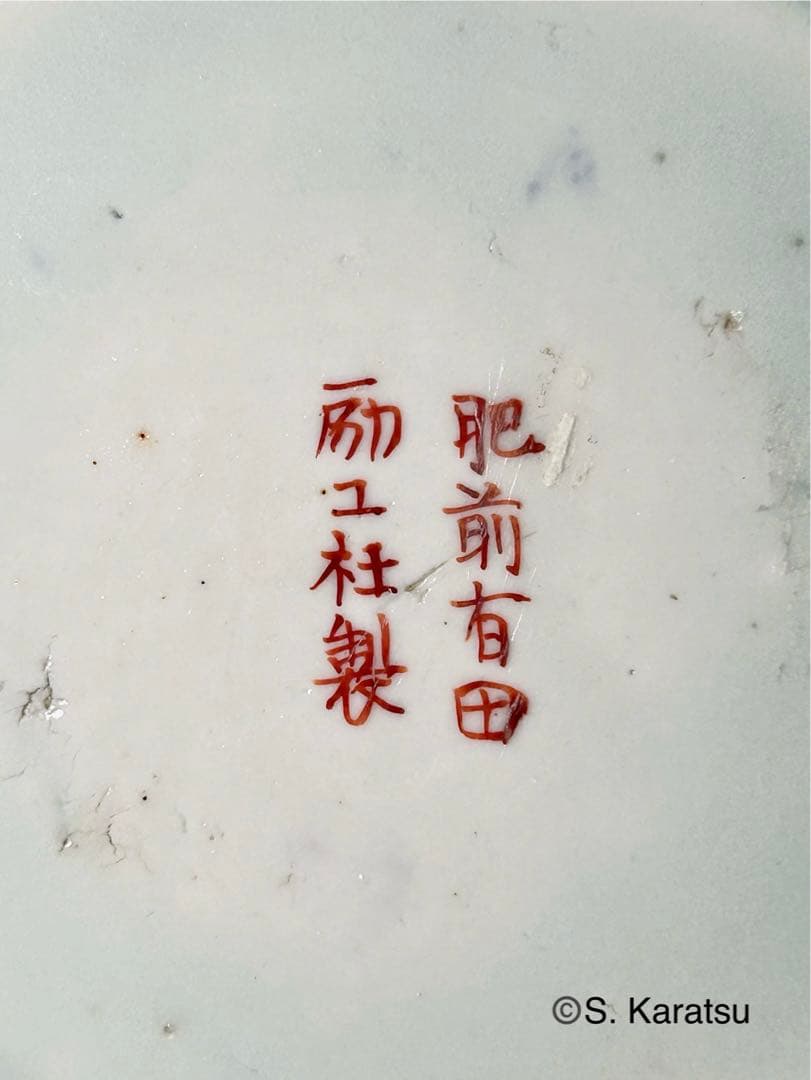 肥前有田
励工社製
©S. Karatsu